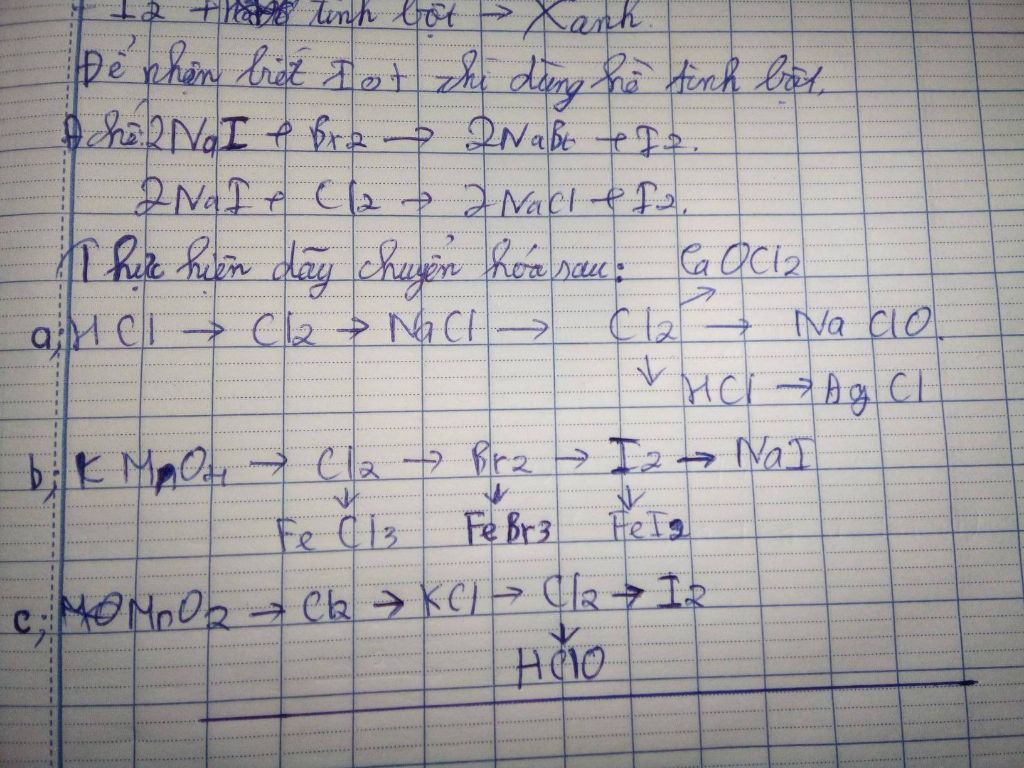 I2 + tinh bột → Xanh.
Để nhận biết Iot chỉ dùng hồ tinh bột.
Đ chế: 2NaI + Br2 → 2NaBr + I2.
2NaI + Cl2 → 2NaCl + I2.
Thực hiện dãy chuyển hóa sau: CaOCl2
a; HCl → Cl2 → NaCl → Cl2 → NaClO.
↓ HCl → AgCl
b; KMnO4 → Cl2 → Br2 → I2 → NaI
↓ ↓ ↓
FeCl3 FeBr3 FeI2
c; MnO2 → Cl2 → KCl → Cl2 → I2
↓
HClO